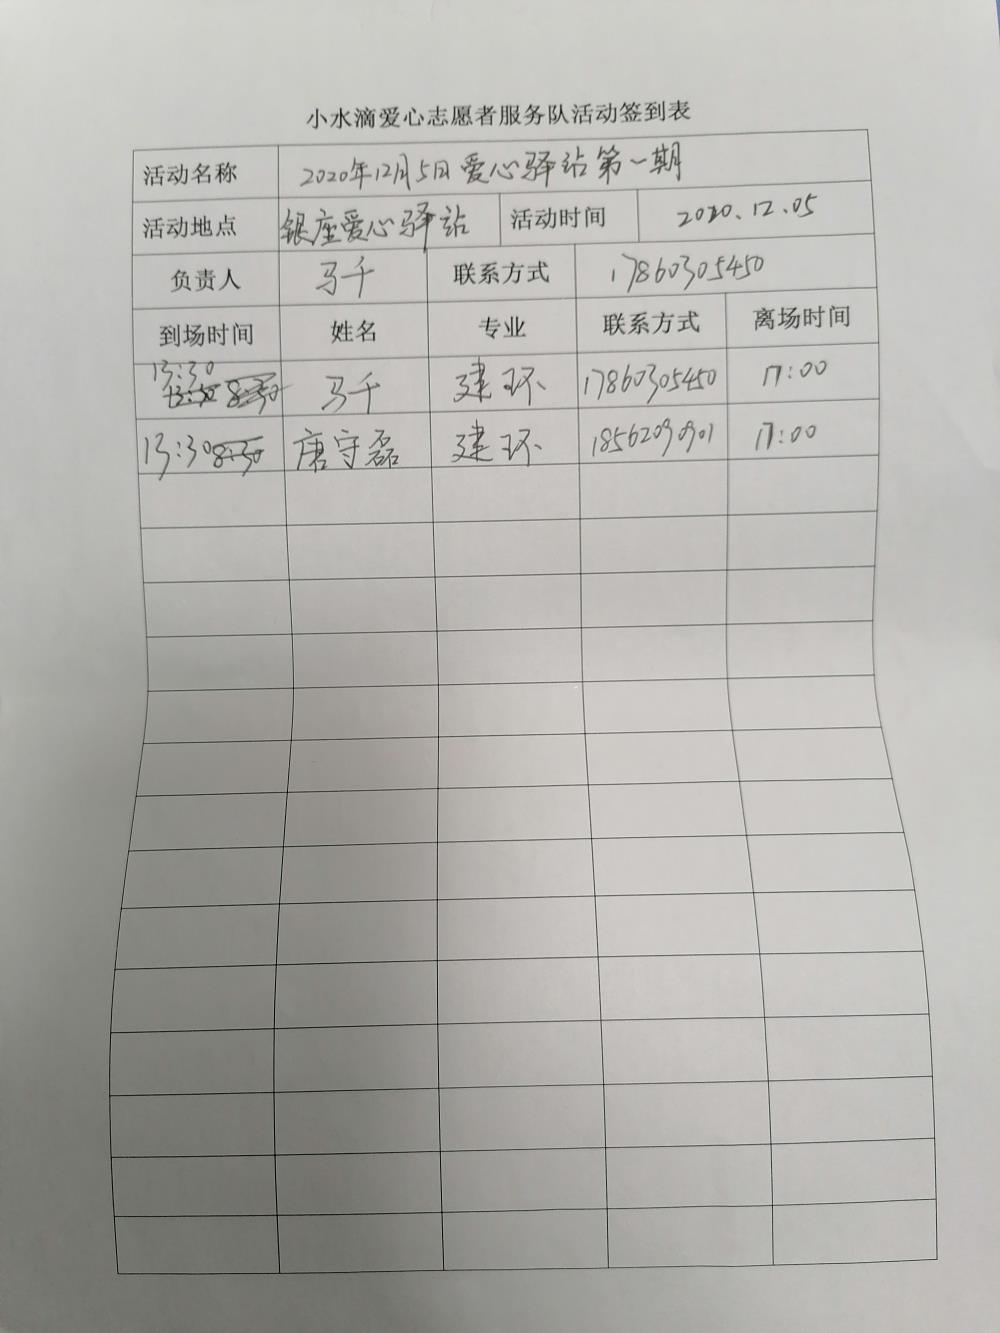 小水滴爱心志愿者服务队活动签到表
活动名称 2020年12月5日爱心驿站第一期
活动地点 银座爱心驿站 活动时间 2020.12.05
负责人 马千 联系方式 17860305450
到场时间 姓名 专业 联系方式 离场时间
13:30 马千 建环 17860305450 17:00
13:30 唐守磊 建环 18562090901 17:00